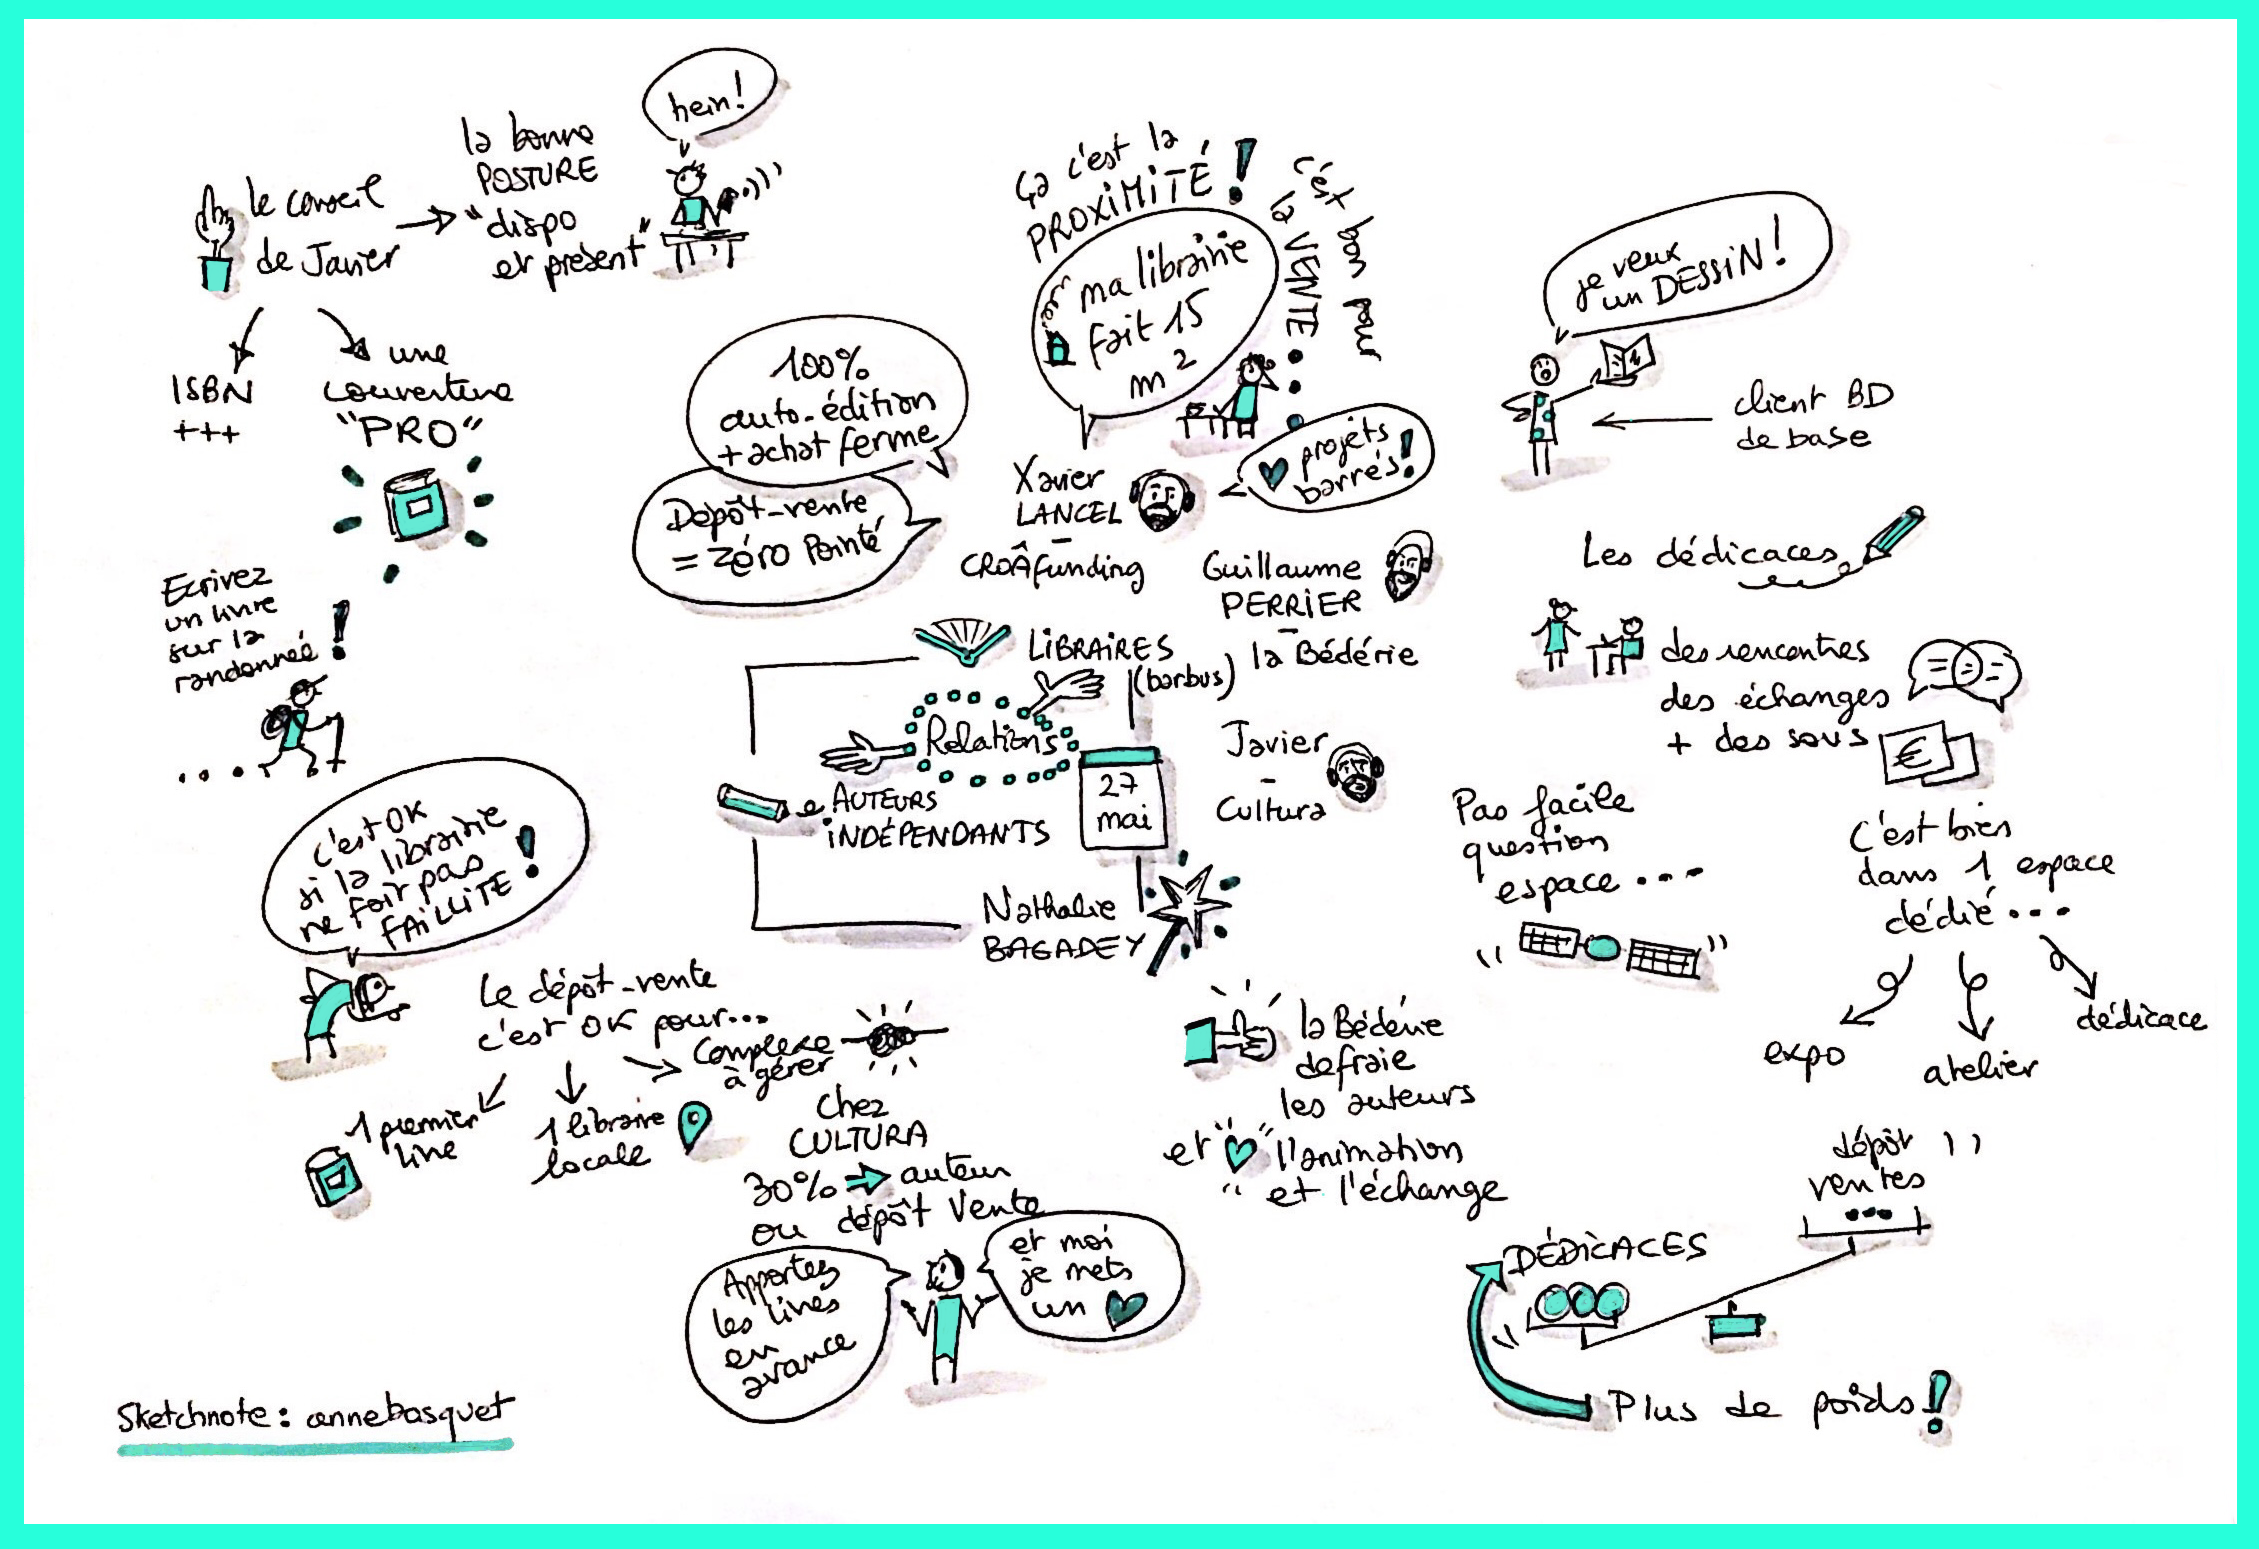 hein!
la bonne
POSTURE
"dispo
et présent"
le conseil
de Javier
ISBN
+++
une
couverture
"PRO"
Ecrivez
un livre
sur la
randonnée!
c'est OK
si la librairie
ne fait pas
FAILLITE!
Le dépôt-vente
c'est OK pour...
Complexe
à gérer
1 premier
livre
1 libraire
locale
100%
auto-édition
+ achat ferme
Dépôt-vente
= zéro pointé
ça c'est la
PROXIMITÉ!
c'est bon pour
la VENTE...
ma librairie
fait 15
m²
Xavier
LANCEL
-
CROÂfunding
♥ projets
barrés!
Guillaume
PERRIER
-
la Bédérie
LIBRAIRES
(barbus)
Relations
AUTEURS
INDÉPENDANTS
27
mai
Javier
-
Cultura
Nathalie
BAGADEY
Chez
CULTURA
30% → auteur
ou dépôt Vente
Apportez
les livres
en
avance
et moi
je mets
un ♥
la Bédérie
défraie
les auteurs
et ♥ l'animation
et l'échange
je veux
un DESSIN!
client BD
de base
Les dédicaces
des rencontres
des échanges
+ des sous
€
Pas facile
question
espace...
C'est bien
dans 1 espace
dédié...
expo
atelier
dédicace
dépôt
ventes
...
DÉDICACES
Plus de poids!
Sketchnote: annebasquet